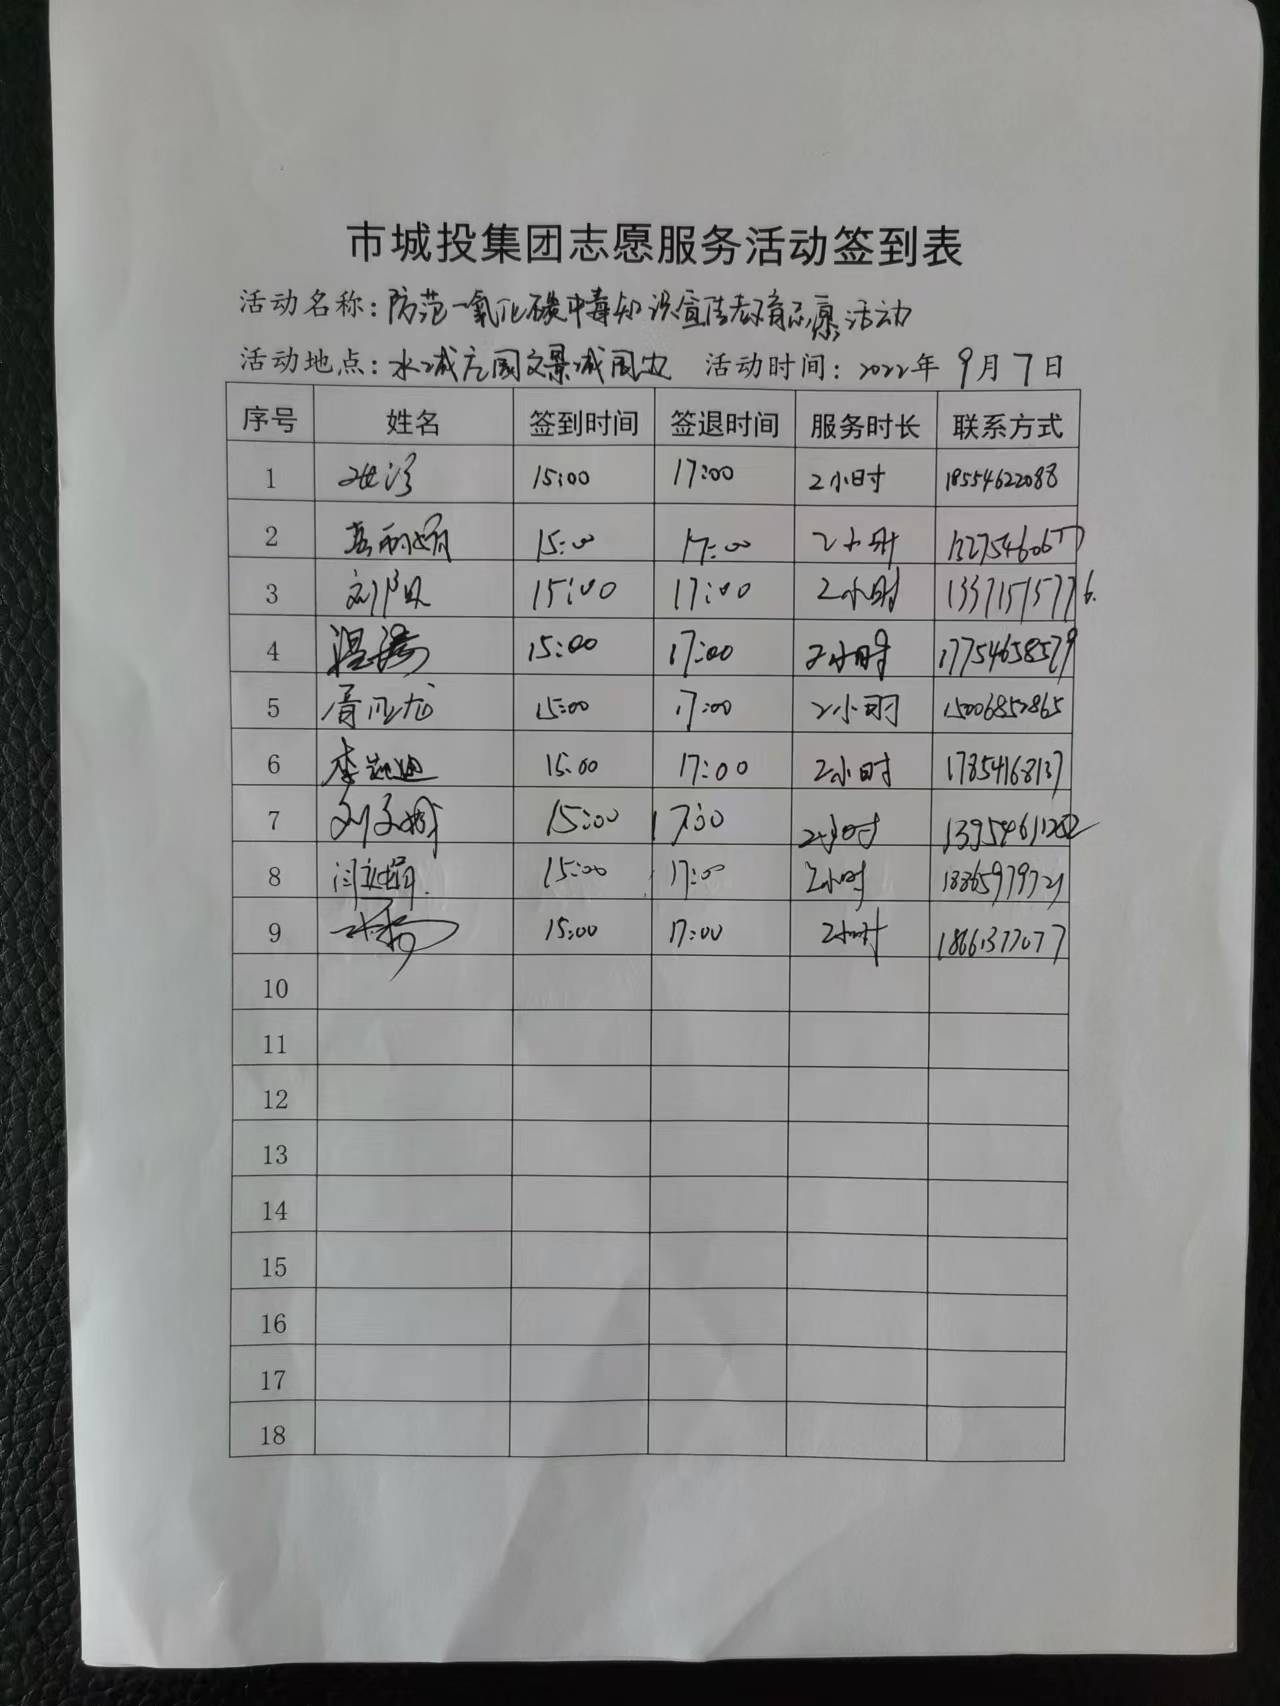 市城投集团志愿服务活动签到表
活动名称：防范一氧化碳中毒知识宣传教育志愿活动
活动地点：水城 国文景城 活动时间：2022年 9月 7日
序号 姓名 签到时间 签退时间 服务时长 联系方式
1 15:00 17:00 2小时 18554622088
2 15:00 17:00 2小时
3 刘阳 15:00 17:00 2小时 13371515776.
4 温涛 15:00 17:00 2小时 17754658579
5 15:00 17:00 2小时 15006852865
6 李 迪 15:00 17:00 2小时 17854168137
7 刘文娥 15:00 17:00 2小时
8 闫 娟 15:00 17:00 2小时 18865979721
9 15:00 17:00 2小时 18661377077
10
11
12
13
14
15
16
17
18